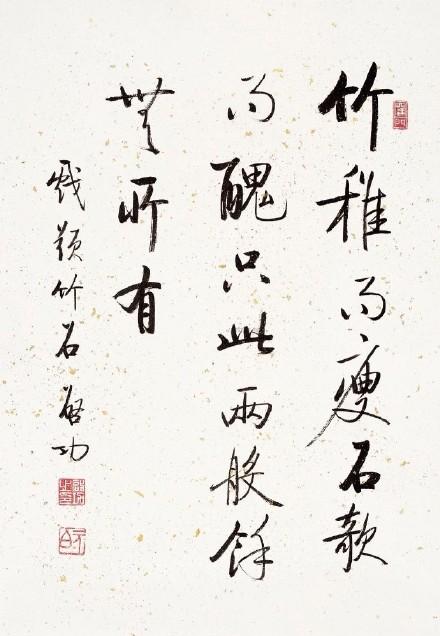 竹稚而瘦石欹
而醜只此兩般餘
無所有
戲題竹石 啟功